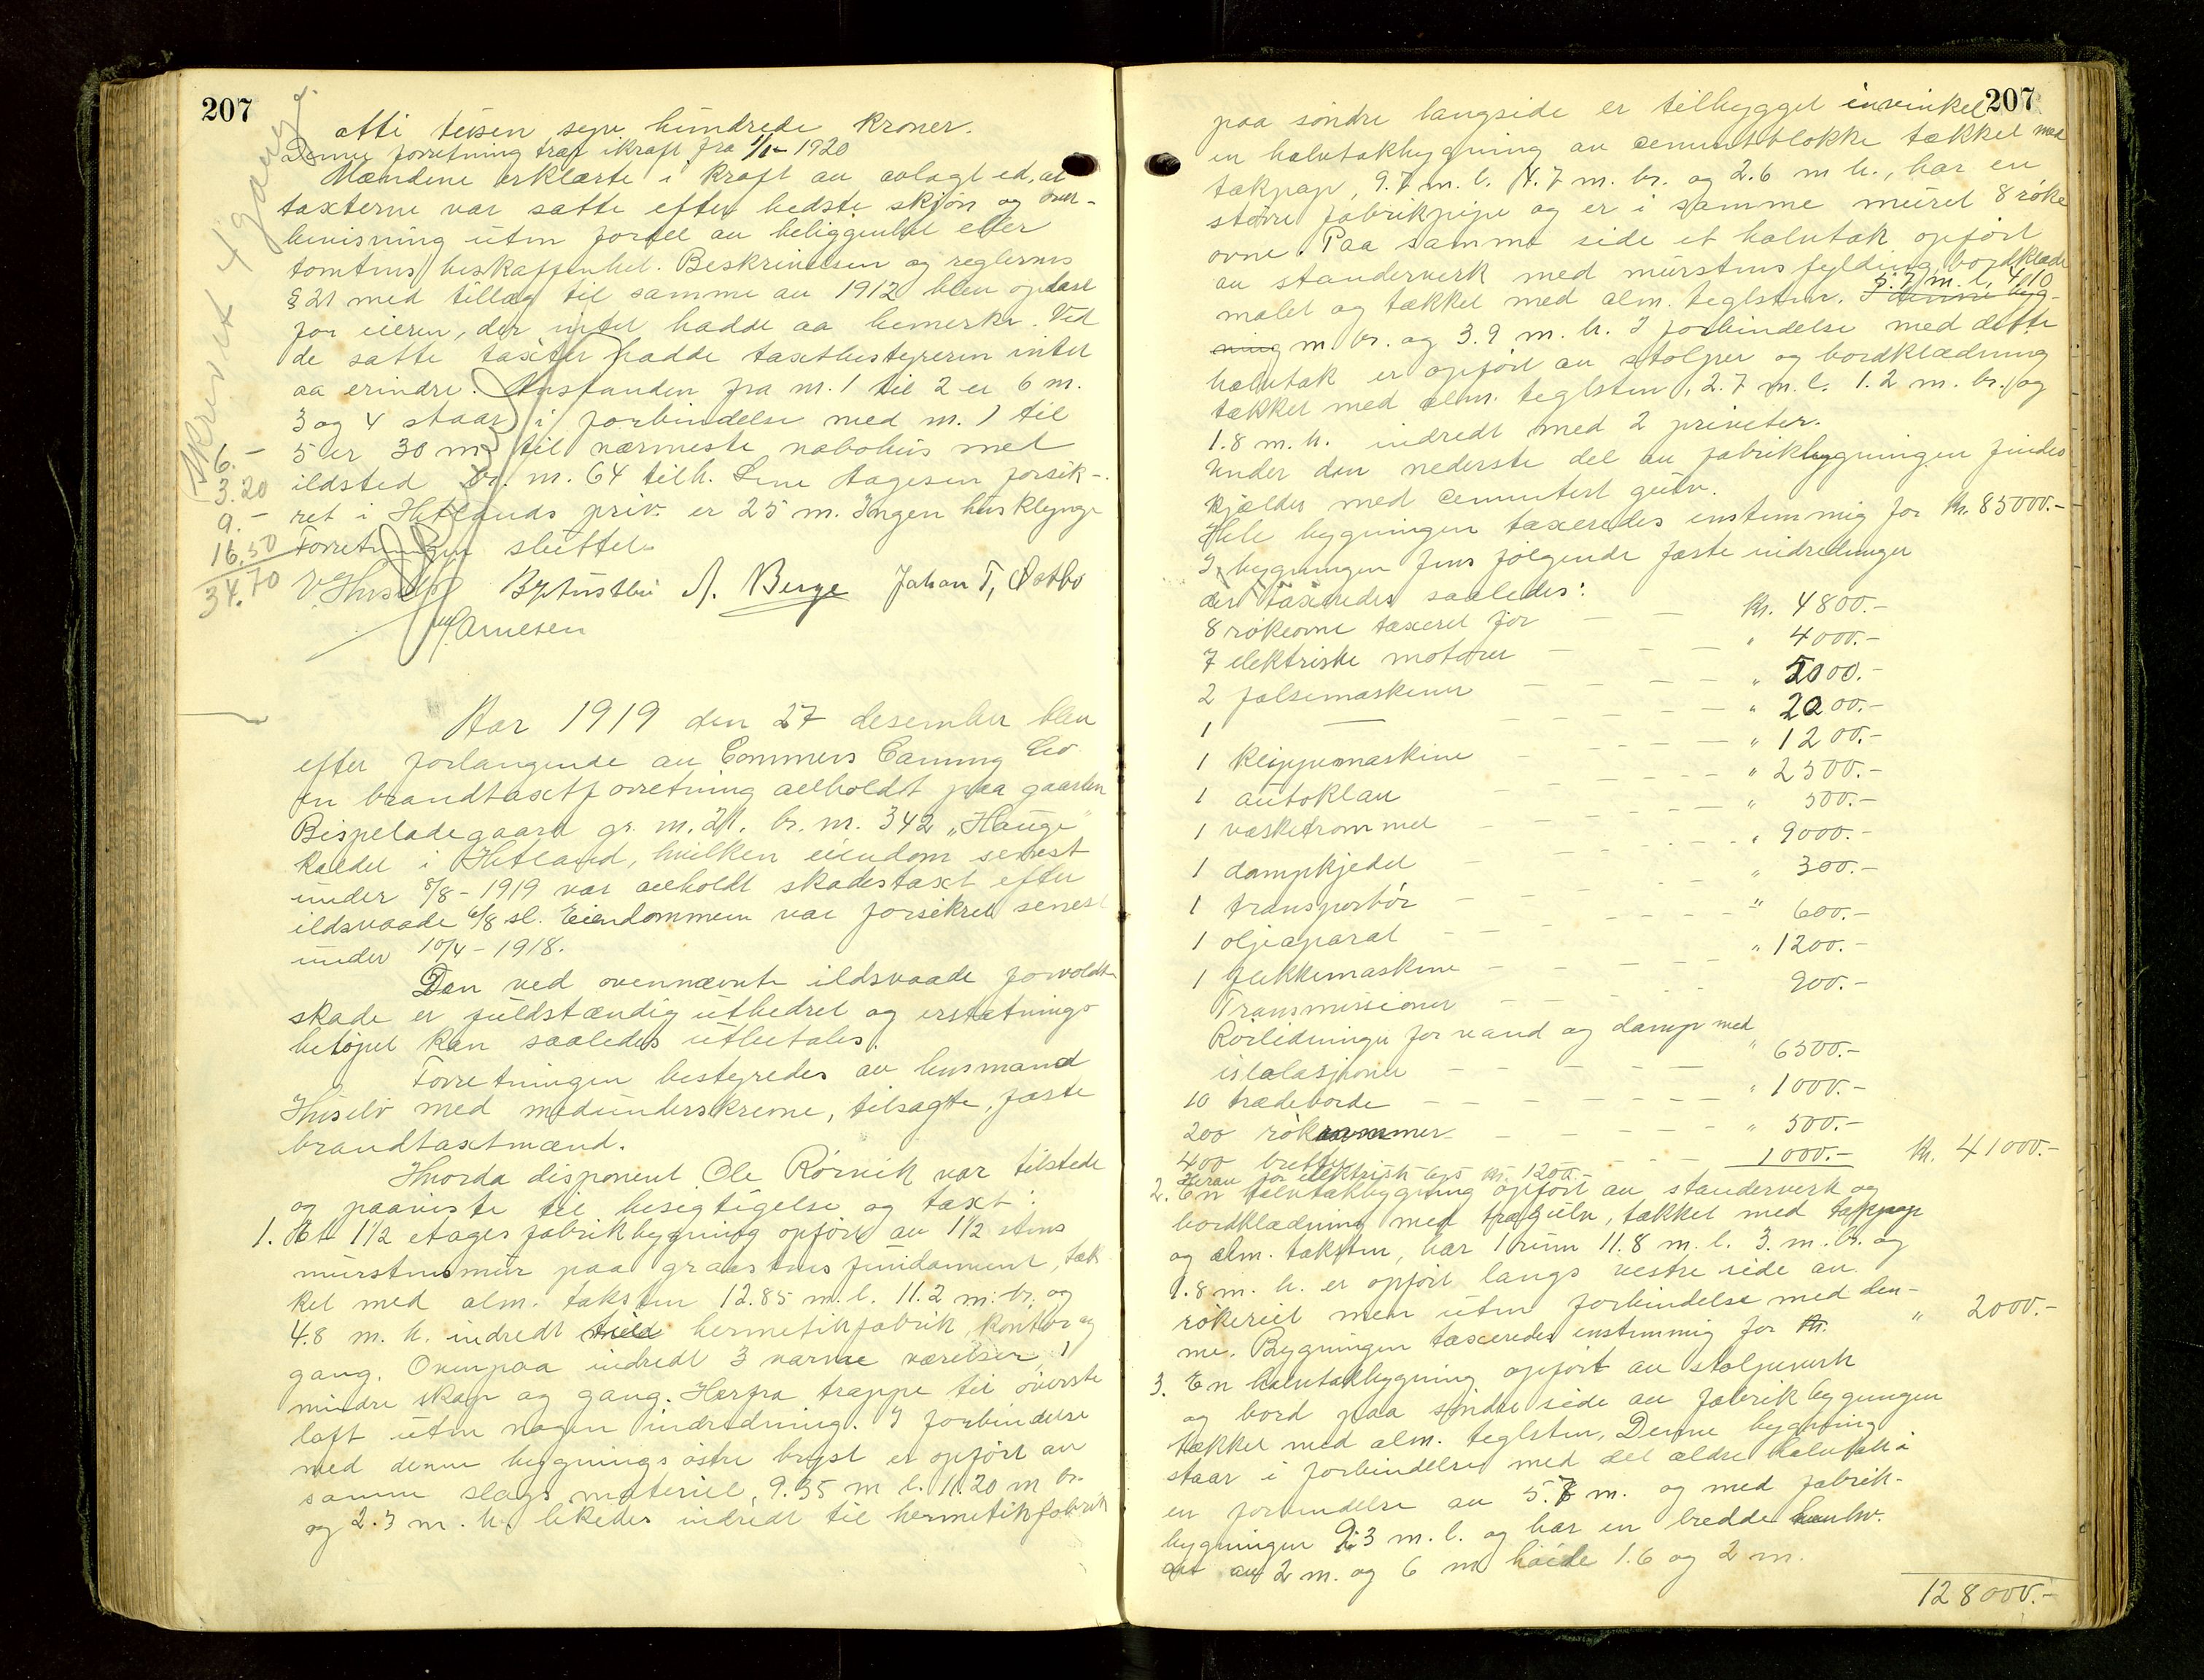 207
otti tusen syv hundrede kroner.
Denne forretning træ ikraft fra 1/1- 1920
Mændene erklærte i kraft av avlagt ed, at
taxterne var satte efter bedste skjøn og over-
bevisning uten fordel av beliggenhet eller
tomtens beskaffenhet. Beskrivelsen og reglernes
§ 21 med tillæg til samme av 1912 blev oplæst
for eieren, der intet hadde aa bemerke. Ved
de satte taxter hadde taxtbestyreren intet
aa erindre. Avstanden fra nr. 1 til 2 er 6 m.
3 og 4 staar i forbindelse med nr. 1 til
5 er 30 m. til nærmeste nabohus med
ildsted br. nr. 64 tilh. Lene Aagesen forsik-
ret i Hetlands priv. er 25 m. Ingen husklynge
Forretningen sluttet.
V. Husebø A. Berge Johan T. Østbø
Arnesen
Skrevet 4 gange
6.-
3.20
9.-
16.50
34.70
Aar 1919 den 27 desember blev
efter forlangende av Commers Caning Co
en brandtaxtforretning avholdt paa gaarden
Bispeladegaard gr. nr. 21. br. nr. 342 „Hauge"
kaldet i Hetland, hvilken eiendom senest
under 8/8 - 1919 var avholdt skadestaxt efter
ildsvaade 6/8 sl. Eiendommen var forsikret senest
under 10/4 - 1918.
Den ved ovennævnte ildsvaade forvoldte
skade er fuldstændig utbedret og erstatnings
beløpet kan saaledes utbetales.
Forretningen bestyredes av lensmand
Husebø med medunderskrevne, tilsagte, faste
brandtaxtmænd.
Hvorda disponent Ole Rørvik var tilstede
og paaviste til besigtigelse og taxt:
1. Et 1 1/2 etages fabrikbygning opført av 1 1/2 stens
murstensmur paa graastens fundament, tæk
ket med alm. taksten 12.85 m. l. 11.2 m. br. og
4.8 m. h. indredt hermetikfabrik, kontor og
gang. Ovenpaa indredt 3 varme værelser, 1
mindre skap og gang. Herfra trappe til øverste
loft uten nogen indredning. I forbindelse
med denne bygnings østre bryst er opført av
samme slags materiel, 9.35 m l. 11.20 m br.
og 2.3 m. h. likedes indredt til hermetikfabrik
207
paa søndre langside er tilbygget i vinkel
en halvtakbygning av cementblokke tækket med
takpap, 9.7 m. l. 4.7 m. br. og 2.6 m h., har en
større fabrikpipe og er i samme muret 8 røke
ovne. Paa samme side et halvtak opført
av standerverk med murstensfylding, bordklædt
malet og tækket med alm. teglsten. I denne byg- 5.7 m. l. 4.10
ning m. br. og 3.9 m. h. I forbindelse med dette
halvtak er opført av stolper og bordklædning
tækket med alm. teglsten, 2.7 m. l. 1.2 m. br. og
1.8 m. h. indredt med 2 priveter.
Under den nederste del av fabrikbygningen findes
kjelder med cementert gulv.
Hele bygningen taxeredes enstemmig for kr. 85000.-
I bygningen fins følgende faste indredninger
der taxeredes saaledes:
8 røkeovne taxeret for — — kr. 4800.-
7 elektriske motorer — — — „ 4000.-
2 falsemaskiner — — — „ 5000.-
1 — — — — „ 2200.-
1 klippemaskine — — — „ 1200.-
1 autoklav — — — „ 2500.-
1 vasketrommel — — — „ 500.-
1 dampkjedel — — — „ 9000.-
1 transportør — — — „ 300.-
1 oljeaparat — — — „ 600.-
1 flekkemaskine — — — „ 1200.-
Transmissioner — — — 900.-
Rørledninger for vand og damp med
— — — „ 6500.-
10 trædeborde — — — „ 1000.-
200 røkrammer — — — „ 500.-
400 bretter — — — 1000.- kr. 41000.-
Herav for elektrisk lys kr. 1200.-
2. En halvtakbygning opført av standerverk og
bordklædning med trægulv, tækket med takpap
og alm. taksten, har 1 rum 11.8 m. l. 3. m. br. og
1.8 m. h. er opført langs vestre side av
røkeriet men uten forbindelse med den-
me. Bygningen taxeredes enstemmig for kr. „ 2000.-
3. En halvtakbygning opført av stolpeverk
og bord paa søndre side av fabrikbygningen
tækket med alm. teglsten. Denne bygning
staar i forbindelse med det ældre halvtak i
en forbindelse av 5.7 m. og med fabrik-
bygningen 2.3 m. l. og har en bredde henhv.
av 2 m. og 6 m høide 1.6 og 2 m.
128000.-